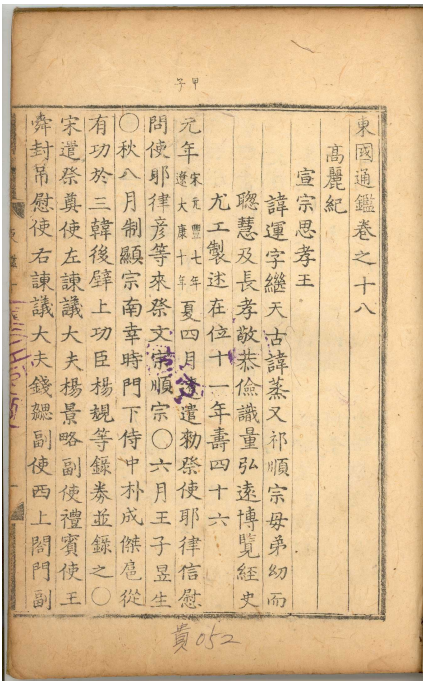 甲子
東國通鑑卷之十八
高麗紀
宣宗思孝王
諱運字繼天古諱蒸又祁順宗母弟幼而
聰慧及長孝敬恭儉識量弘遠博覽經史
尤工製述在位十一年壽四十六
元年宋元豐七年遼大康十年夏四月遼遣勑祭使耶律信慰
問使耶律彦等來祭文宗順宗〇六月王子昱生
〇秋八月制顯宗南幸時門下侍中朴成傑扈從
有功於三韓後壁上功臣楊規等錄券並錄之〇
宋遣祭奠使左諫議大夫楊景略副使禮賓使王
舜封吊慰使右諫議大夫錢勰副使西上閤門副
貴052